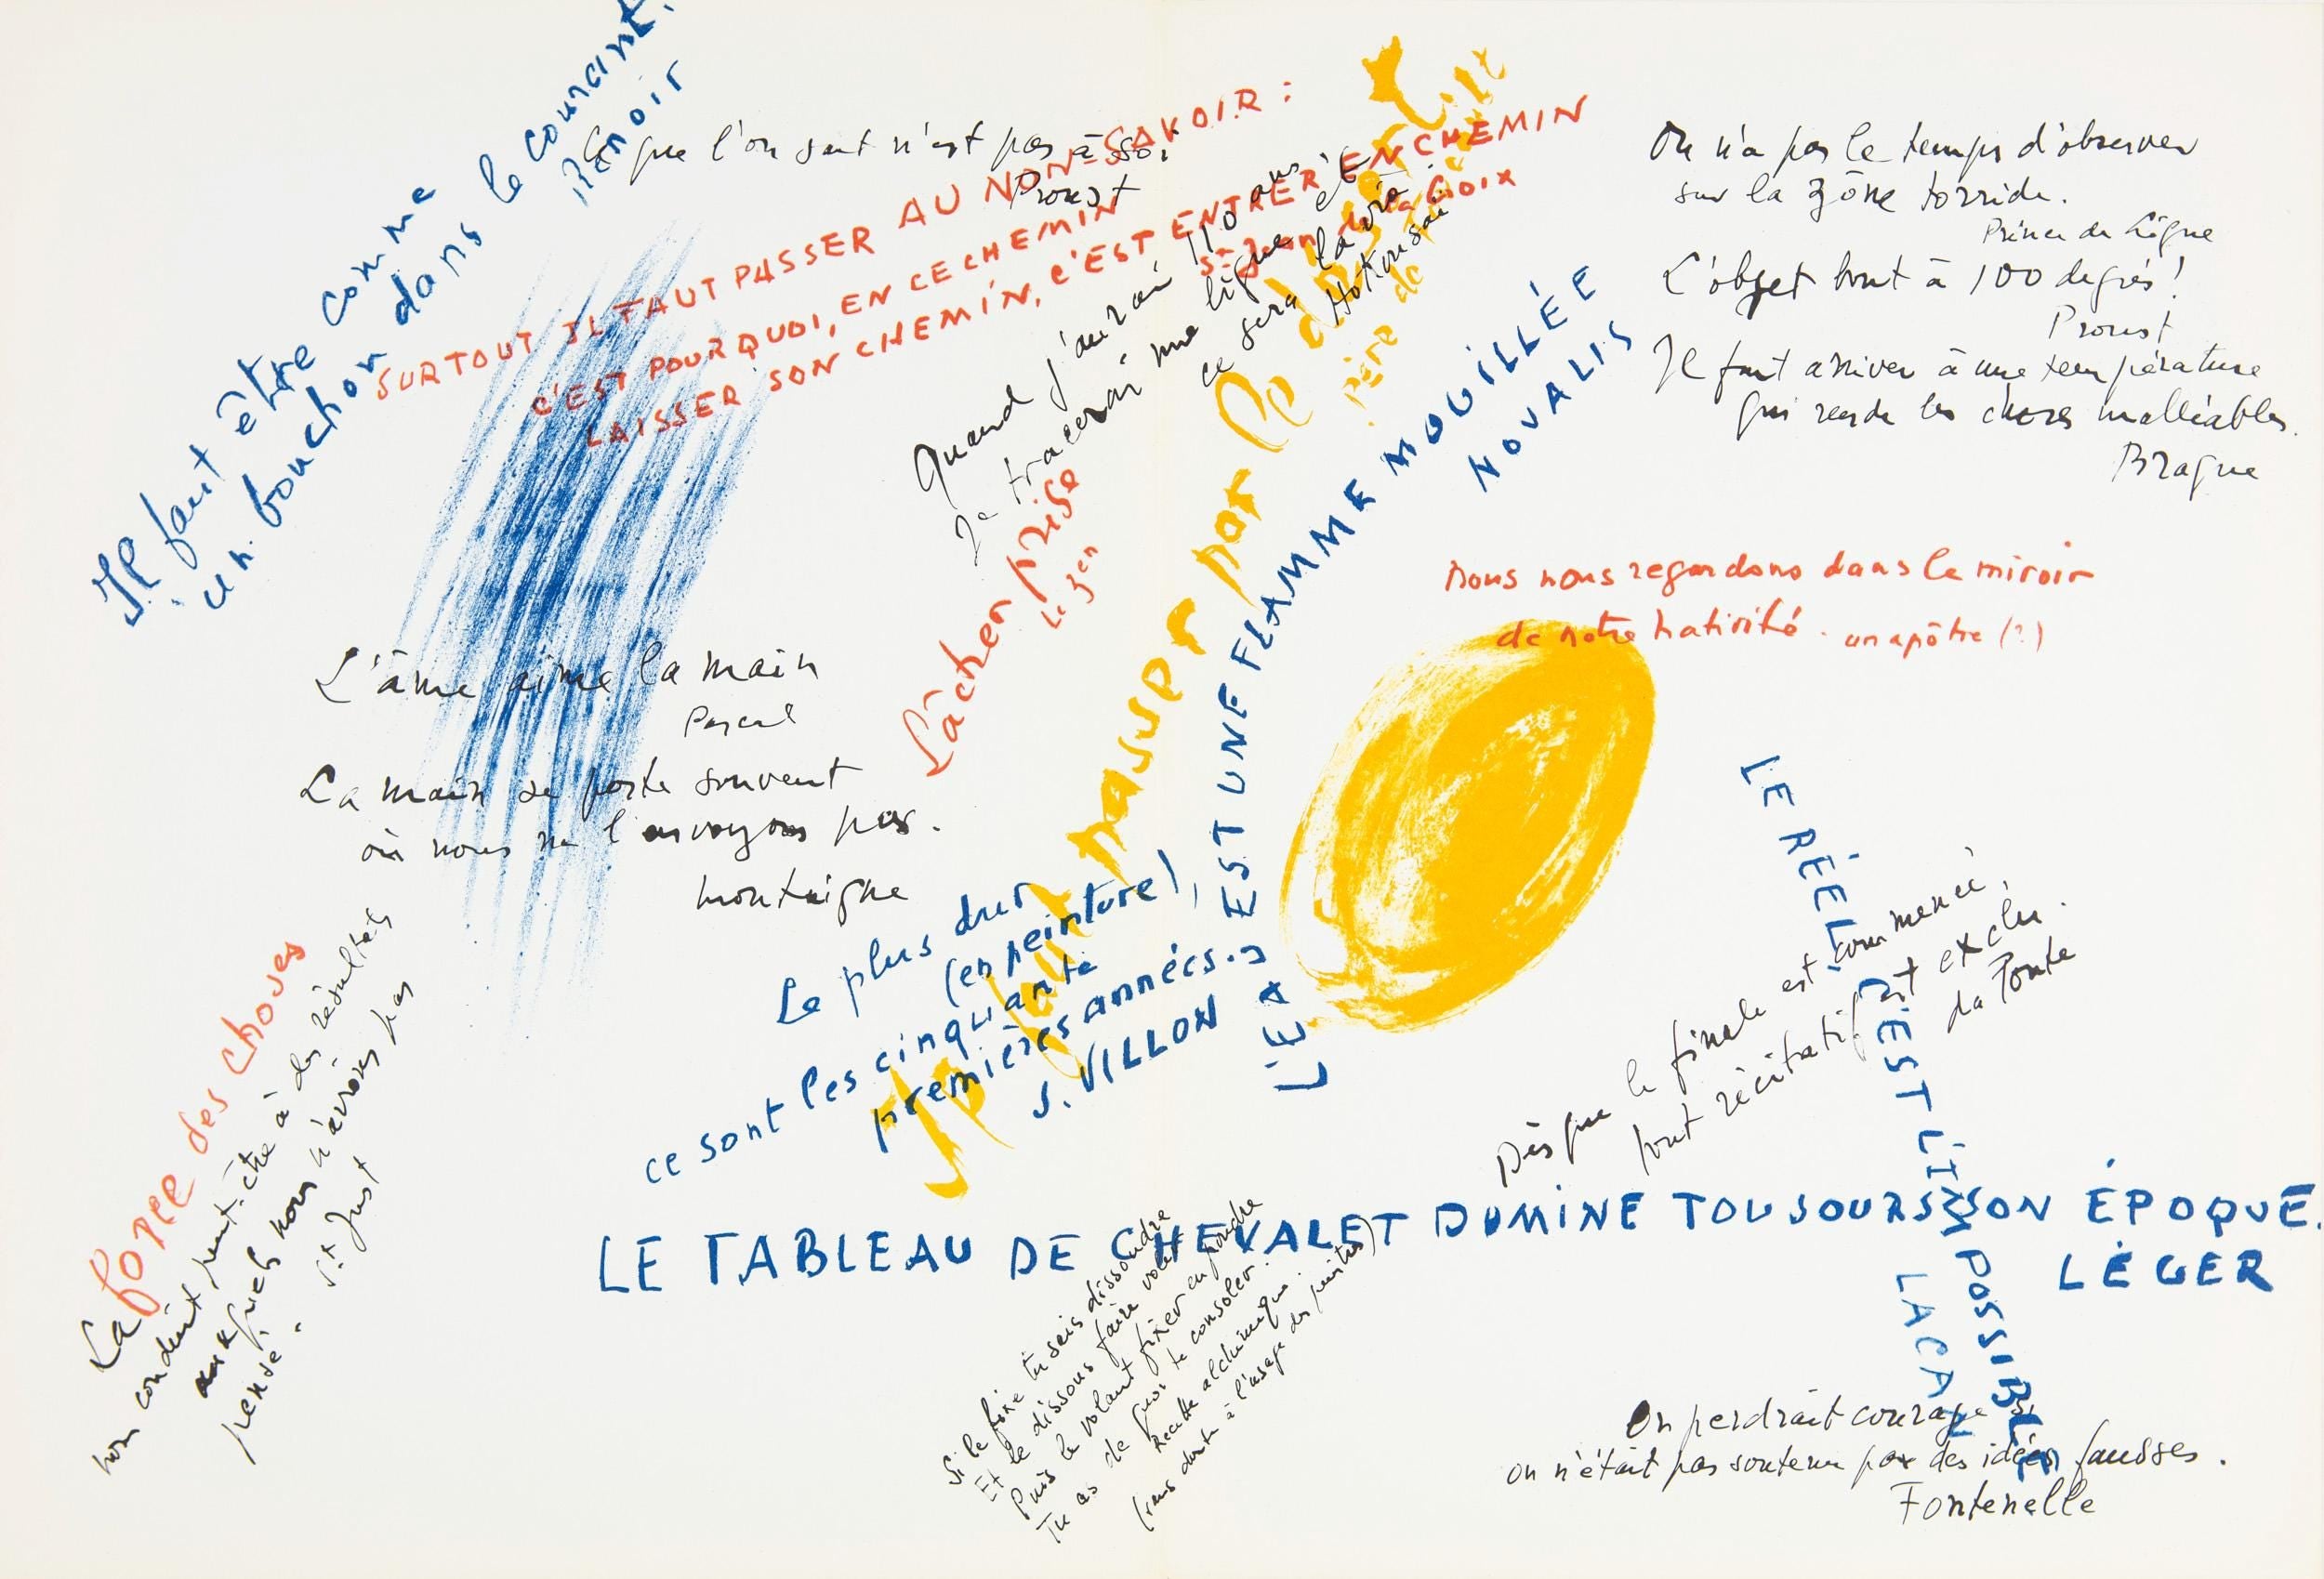 Il faut être comme
un bouchon dans le courant.
Renoir
Ce que l'on sait n'est pas à soi
Proust
SURTOUT IL FAUT PASSER AU NON-SAVOIR :
C'EST POURQUOI, EN CE CHEMIN
LAISSER SON CHEMIN, C'EST ENTRER EN CHEMIN
St Jean de la Croix
Quand j'aurai 110 ans
je tracerai une ligne et
ce sera la vie
Hokousaï
Lâcher prise
le zen
Il faut passer par le désert
Père de
L'EAU EST UNE FLAMME MOUILLÉE
NOVALIS
On n'a pas le temps d'observer
sur la zône torride.
Prince de Ligne
L'objet bout à 100 degrés !
Proust
Il faut arriver à une température
qui rende les choses malléables.
Braque
nous nous regardons dans le miroir
de notre nativité. un apôtre (?)
L'âme aime la main
Pascal
La main se porte souvent
où nous ne l'envoyons pas.
Montaigne
Le plus dur
(en peinture),
ce sont les cinquante
premières années.
J. VILLON
La force des choses
nous conduit peut-être à des résultats
auxquels nous n'avions pas
pensé.
St Just
LE RÉEL, C'EST L'IMPOSSIBLE
LACAN
Dès que le finale est commencé,
tout récitatif est exclu.
da Ponte
LE TABLEAU DE CHEVALET DOMINE TOUJOURS SON ÉPOQUE.
LÉGER
Si le fixe tu sais dissoudre
Et le dissous faire voler
Puis le volant fixer en poudre
Tu as de quoi te consoler.
Recette alchimique.
(sans doute à l'usage des peintres)
On perdrait courage si
on n'était pas soutenu par des idées fausses.
Fontenelle